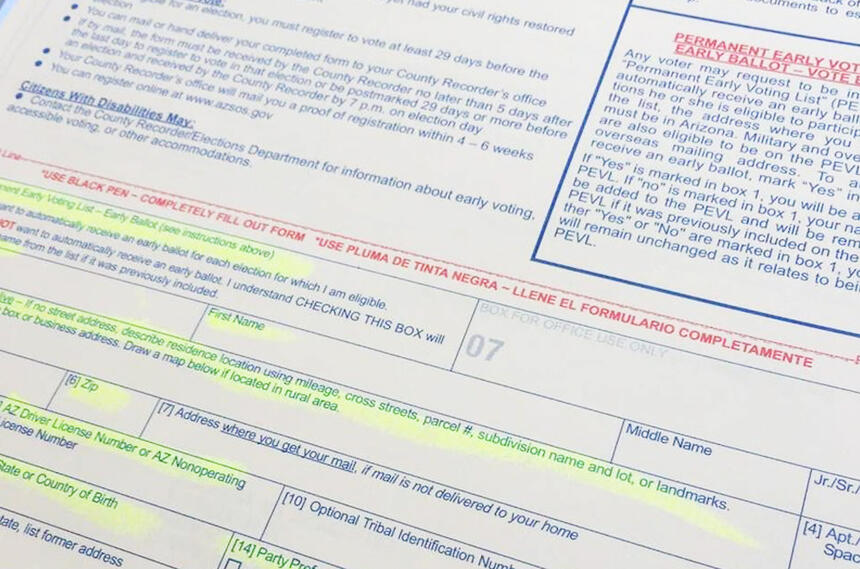 yet had your civil rights restored
eligible for an election, you must register to vote at least 29 days before the
You can mail or hand deliver your completed form to your County Recorder's office
If by mail, the form must be received by the County Recorder no later than 5 days after
the last day to register to vote in that election or be postmarked 29 days or more before
an election and received by the County Recorder by 7 p.m. on election day
Your County Recorder's office will mail you a proof of registration within 4 – 6 weeks
You can register online at www.azsos.gov
Citizens With Disabilities May:
Contact the County Recorder/Elections Department for information about early voting,
accessible voting, or other accommodations.
PERMANENT EARLY VOT
EARLY BALLOT – VOTE
Any voter may request to be in
"Permanent Early Voting List" (PE
automatically receive an early ball
tions he or she is eligible to particip
the list, the address where you
must be in Arizona. Military and ove
are also eligible to be on the PEVL
overseas mailing address. To a
receive an early ballot, mark "Yes" in
If "Yes" is marked in box 1, you will be a
PEVL. If "no" is marked in box 1, your na
be added to the PEVL and will be rem
PEVL if it was previously included on the
ther "Yes" or "No" are marked in box 1, y
will remain unchanged as it relates to bei
PEVL.
Line
"USE BLACK PEN ~ COMPLETELY FILL OUT FORM "USE PLUMA DE TINTA NEGRA ~ LLENE EL FORMULARIO COMPLETAMENTE
nent Early Voting List – Early Ballot (see instructions above)
want to automatically receive an early ballot for each election for which I am eligible.
NOT want to automatically receive an early ballot. I understand CHECKING THIS BOX will
name from the list if it was previously included.
BOX FOR OFFICE USE ONLY
07
First Name
Middle Name
Jr./Sr./
ive – If no street address, describe residence location using mileage, cross streets, parcel #, subdivision name and lot, or landmarks.
box or business address. Draw a map below if located in rural area.
[4] Apt./
Spac
[6] Zip
[7] Address where you get your mail, if mail is not delivered to your home
AZ Driver License Number or AZ Nonoperating
License Number
[10] Optional Tribal Identification Num
State or Country of Birth
[14] Party Pref
state, list former address